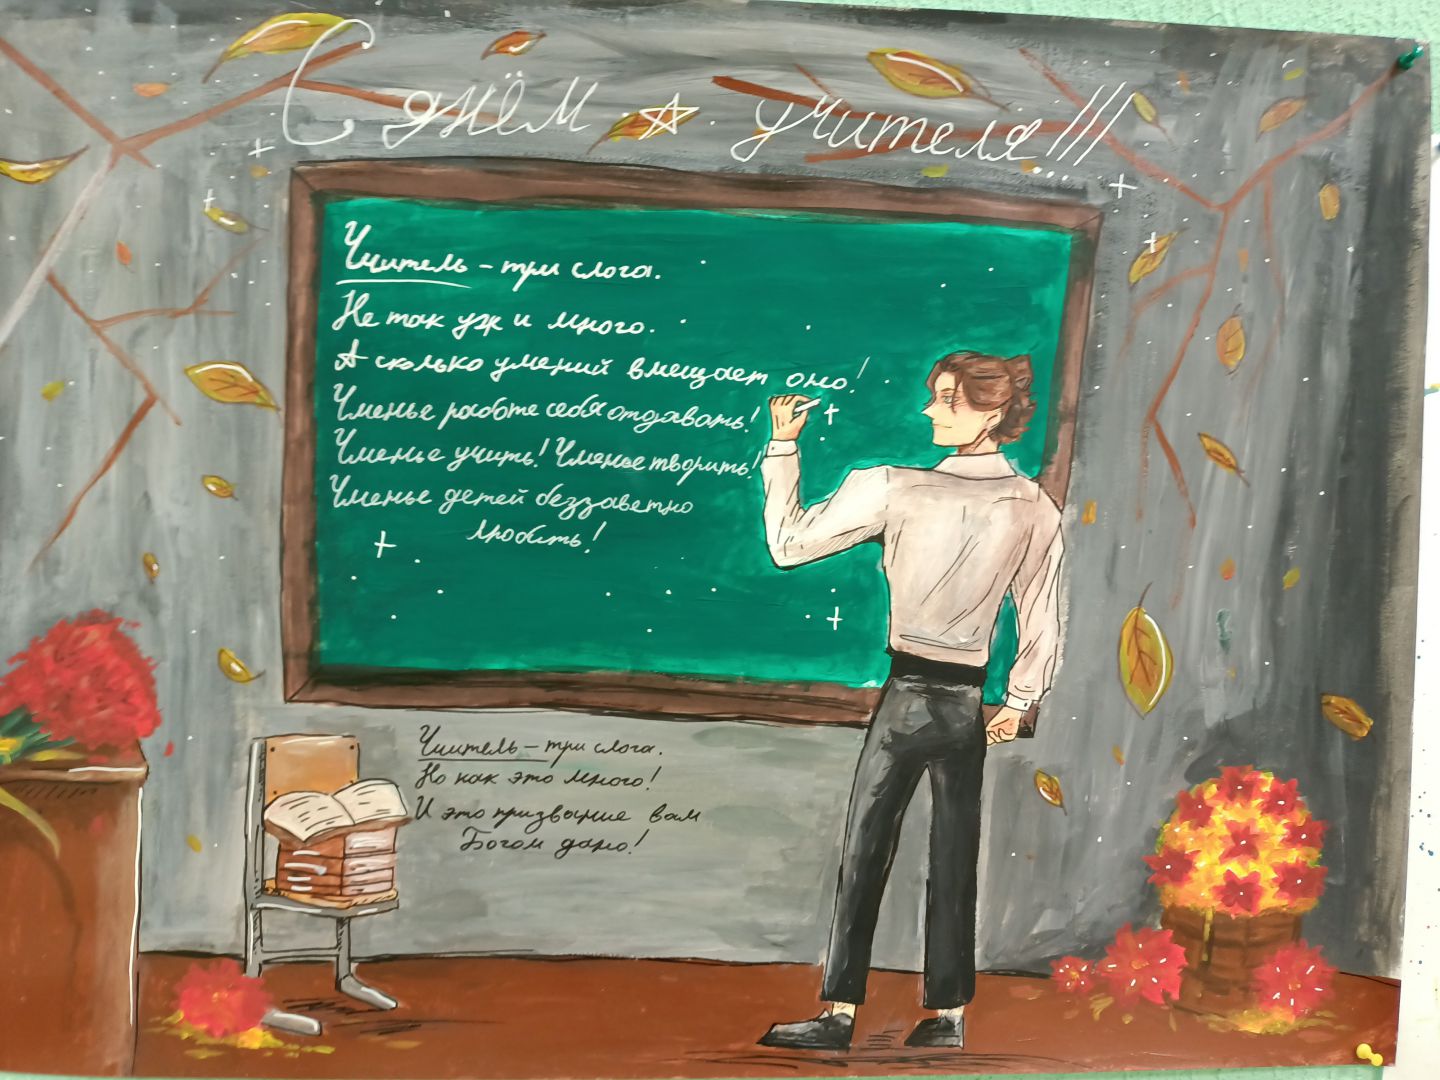 С днём учителя!!!
Учитель – три слога.
Не так уж и много.
А сколько умений вмещает оно!
Уменье работе себя отдавать!
Уменье учить! Уменье творить!
Уменье детей беззаветно
любить!
Учитель – три слога.
Но как это много!
И это призвание вам
Богом дано!